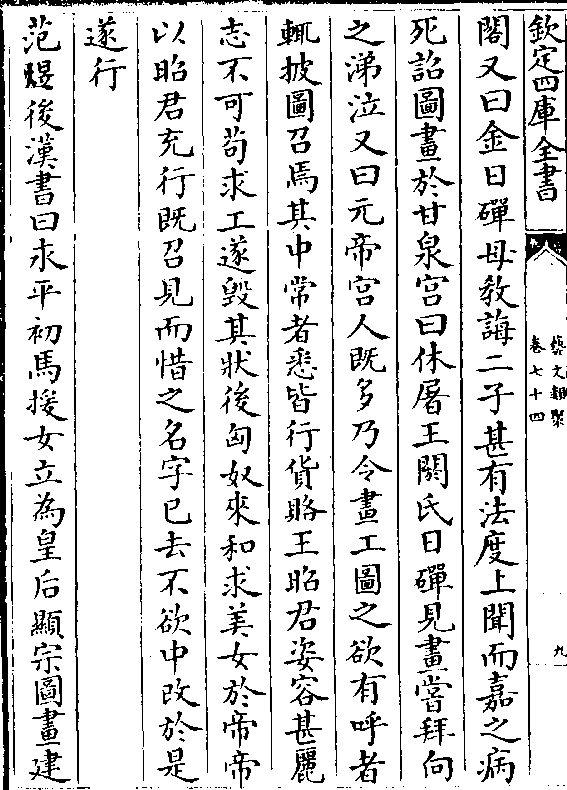 欽定四庫全書
藝文類聚
卷七十四
九
閣又曰金日磾母教誨二子甚有法度上聞而嘉之病
死詔圖畫於甘泉宮曰休屠王閼氏日磾見畫當拜向
之涕泣又曰元帝宮人既多乃令畫工圖之欲有呼者
輒披圖召焉其中常者悉皆行貨賂王昭君姿容甚麗
志不可苟求工遂毀其狀後匈奴來和求美女於帝帝
以昭君充行既召見而惜之名字已去不欲中改於是
遂行
范煜後漢書曰永平初馬援女立為皇后顯宗圖畫建